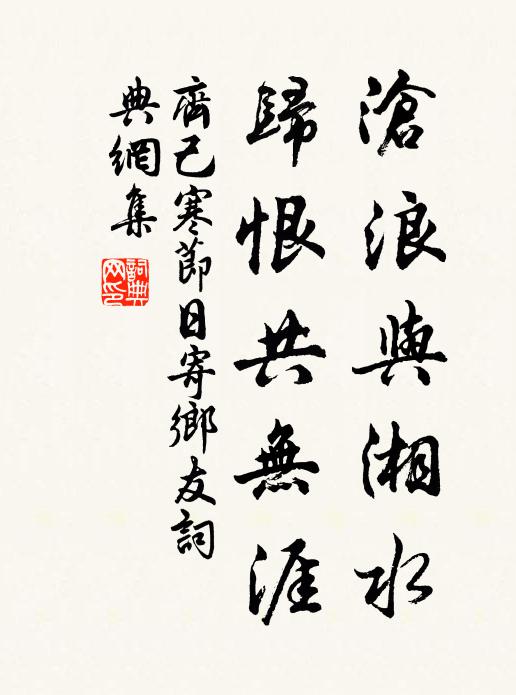 滄浪與湘水
歸恨共無涯
齊己寒節日寄鄉友詞
典網集
詞典
网印